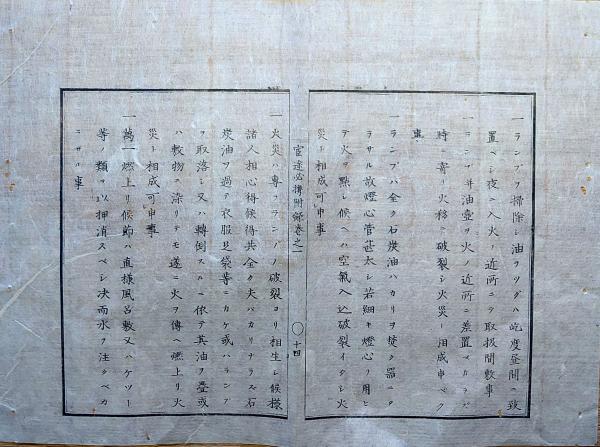 一ランプヲ掃除シ油ヲツグハ屹度昼間ニ致
置ベシ夜ニ入火ノ近所ニテ取扱間敷事
一ランプ并油壺ヲ火ノ近所ニ差置ベカラズ
時ニ寄リ火移リ破裂シ火災ト相成申ベク
事
一ランプハ全ク石炭油ハカリヲ焚ク器ニ
ラサル故燈心管甚太シ若細キ燈心ヲ用ヒ
テ火ヲ點シ候ヘハ空氣入込破裂イタシ火
災ト相成可申事
官途必携附録巻之一
十四
一火災ハ専ラランプノ破裂ヨリ相生シ候様
諸人相心得候得共全ク夫バカリナラズ石
炭油ヲ過テ衣服足袋等ニカケ或ハランプ
ヲ取落シ又ハ轉倒スルニ依テ其油ヲ疊或
ハ敷物ニ染リテモ遂ニ火ヲ傳ヘ燃上リ火
災ト相成可申事
一萬一燃上リ候節ハ直様風呂敷又ハケツト
等ノ類ヲ以押消スベシ决而水ヲ注クベカ
ラサル事